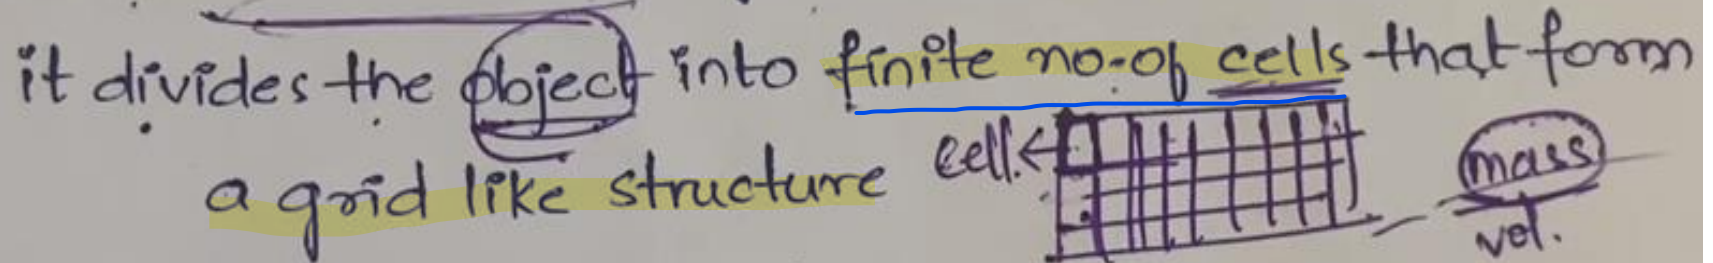 it divides the object into finite no. of cells that form
a grid like structure
cell
mass
vol.